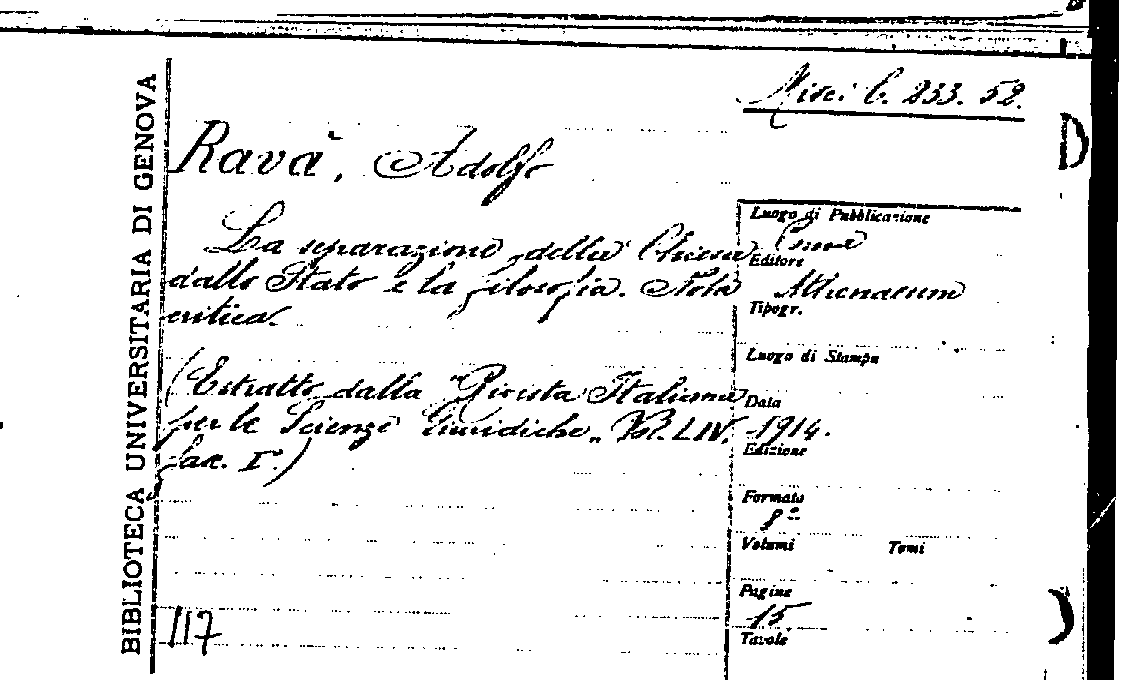 BIBLIOTECA UNIVERSITARIA DI GENOVA
Misc. b. 233. 52.
Ravà, Adolfo
La separazione della Chiesa
dallo Stato e la filosofia. Nota
critica.
(Estratto dalla "Rivista Italiana
per le Scienze Giuridiche„ Vol. LIV.
fasc. I°.)
117
Luogo di Pubblicazione
Roma
Editore
Athenaeum
Tipogr.
Luogo di Stampa
Data
1914.
Edizione
Formato
8º
Volumi Tomi
Pagine
15
Tavole